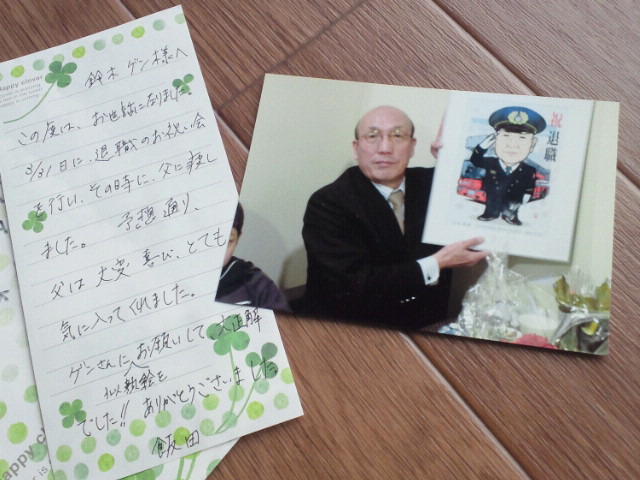 appy clover
鈴木 ゲン様へ
この度は、お世話になりました。
3/31日に、退職のお祝い会
を行い、その時に、父に渡し
ました。 予想通り、
父は大変喜び、とても
気に入ってくれました。
ゲンさんにお願いして大正解
似顔絵を
でした!! ありがとうございました
飯田
祝
退職
appy c